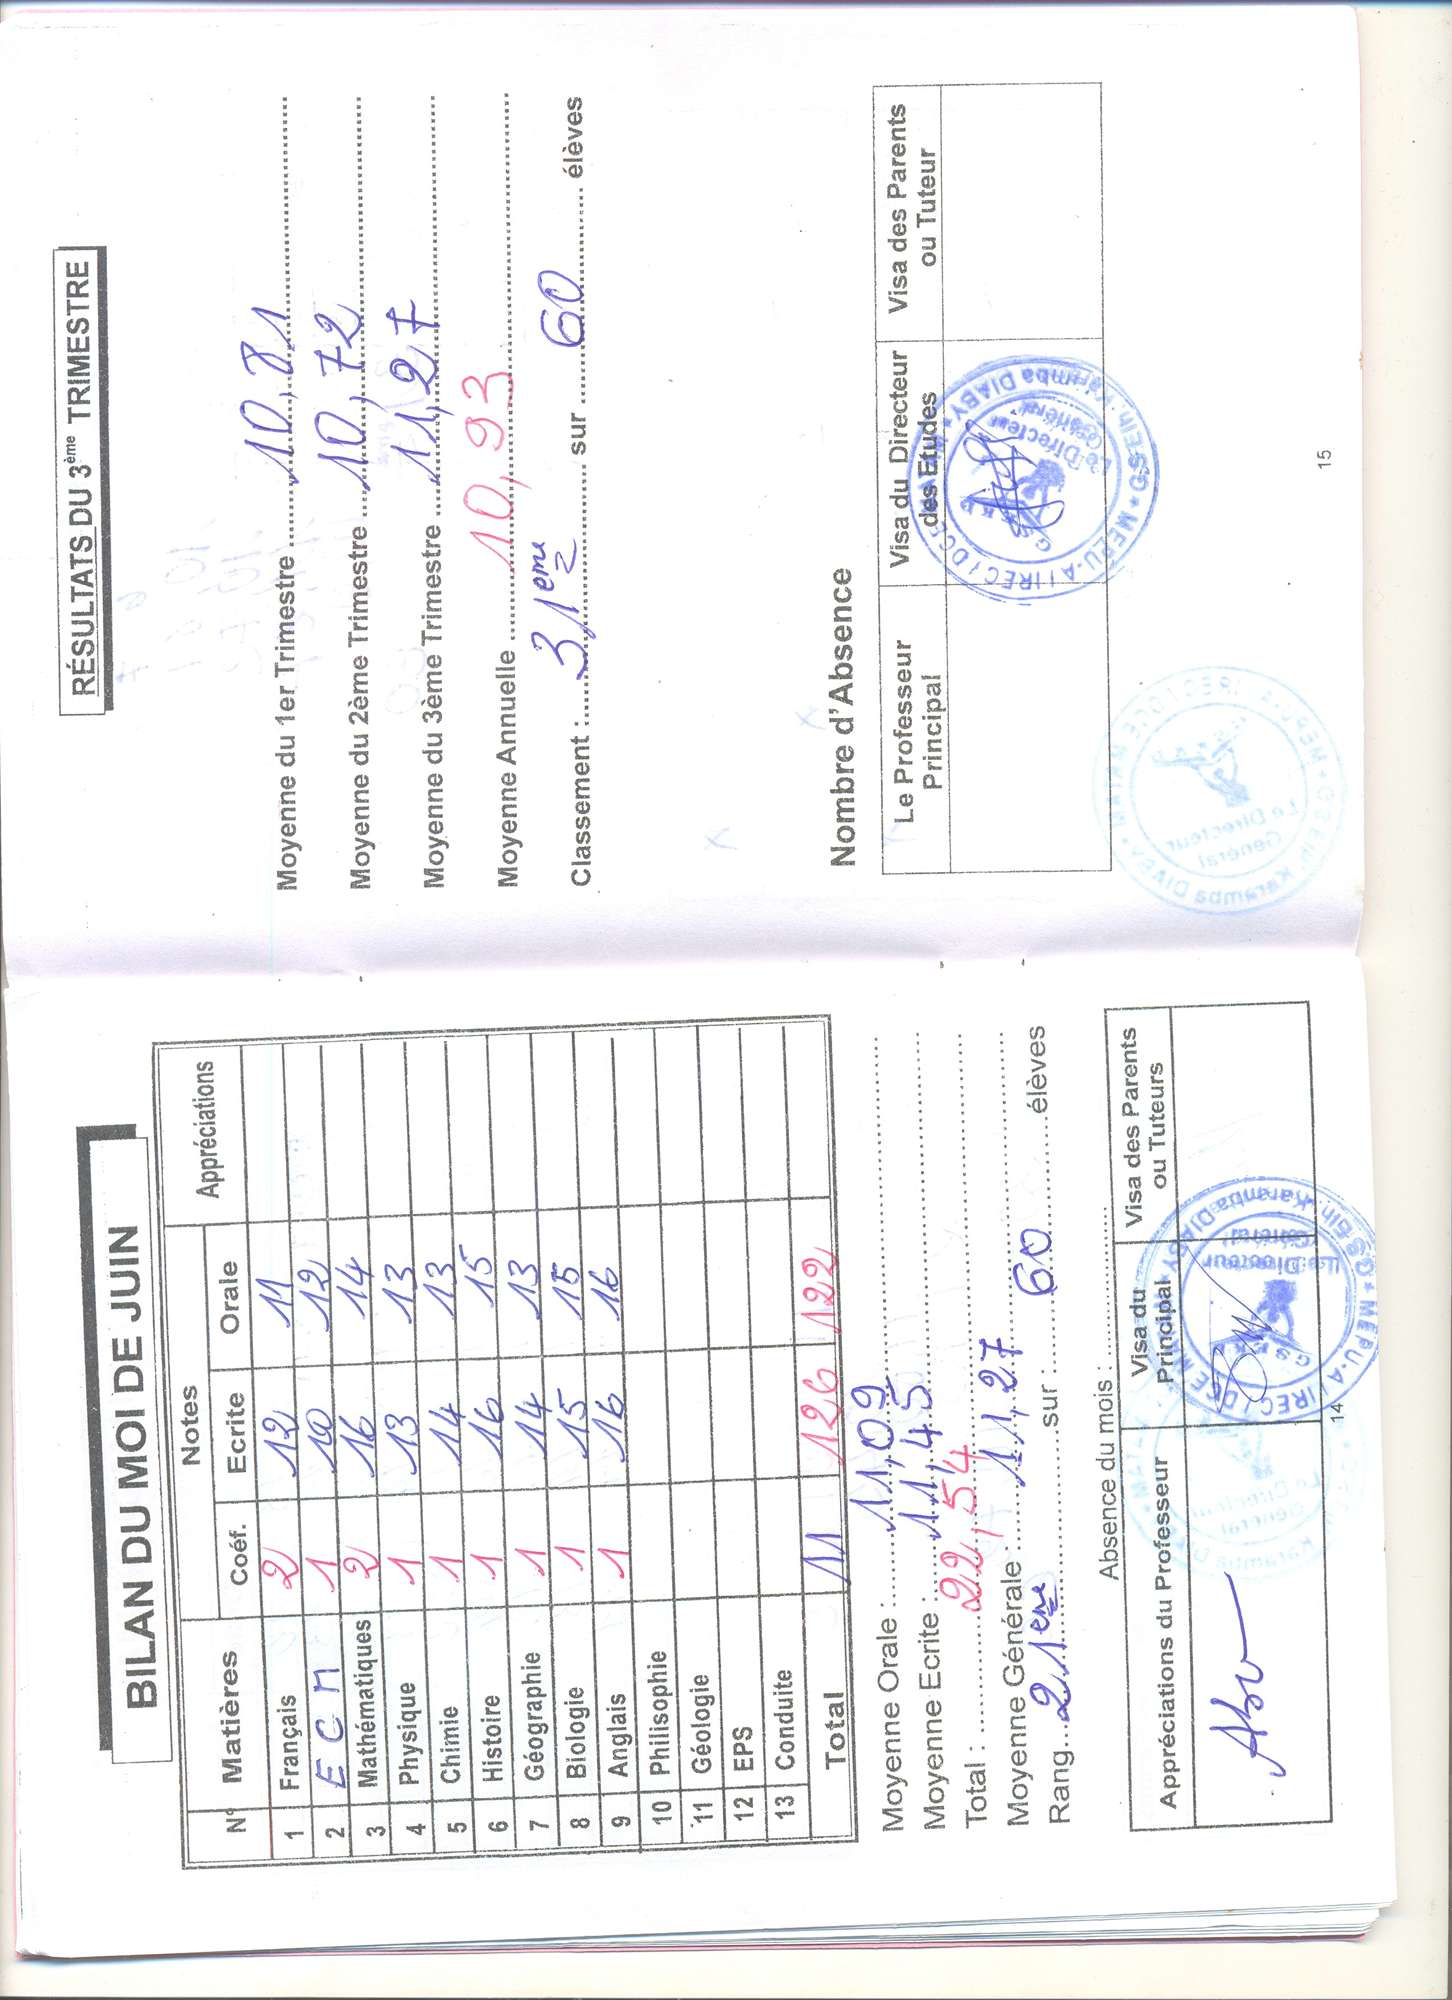 BILAN DU MOI DE JUIN
N° Matières Notes Appréciations
Coéf. Ecrite Orale
1 Français 2 12 11
2 ECM 1 10 12
3 Mathématiques 2 16 14
4 Physique 1 13 13
5 Chimie 1 14 13
6 Histoire 1 16 15
7 Géographie 1 14 13
8 Biologie 1 15 15
9 Anglais 1 16 16
10 Philisophie
11 Géologie
12 EPS
13 Conduite
Total 11 126 122
Moyenne Orale : 11,09
Moyenne Ecrite : 11,45
Total : 22,54
Moyenne Générale : 11,27
Rang 21eme sur : 60 élèves
Absence du mois :
Appréciations du Professeur Visa du Principal Visa des Parents ou Tuteurs
Le Directeur Général
GSEKD
14
RÉSULTATS DU 3ème TRIMESTRE
Moyenne du 1er Trimestre 10,81
Moyenne du 2ème Trimestre 10,72
Moyenne du 3ème Trimestre 11,27
Moyenne Annuelle 10,93
Classement : 31eme sur 60 élèves
Nombre d'Absence
Le Professeur Principal Visa du Directeur des Etudes Visa des Parents ou Tuteur
Karamba DIABY
Le Directeur Général
GSEKD
15